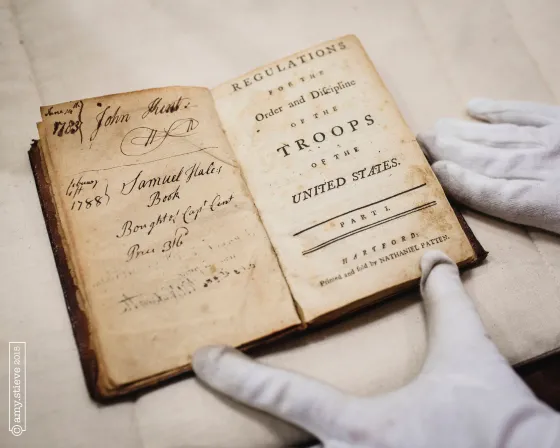 John Hunt
1783
1788
Samuel Hales
Book
Bought of Capt Hunt
Price 3/6
REGULATIONS
FOR THE
Order and Diſcipline
OF THE
TROOPS
OF THE
UNITED STATES.
PART I.
HARTFORD:
Printed and ſold by NATHANIEL PATTEN.
© amy.stieve 2018